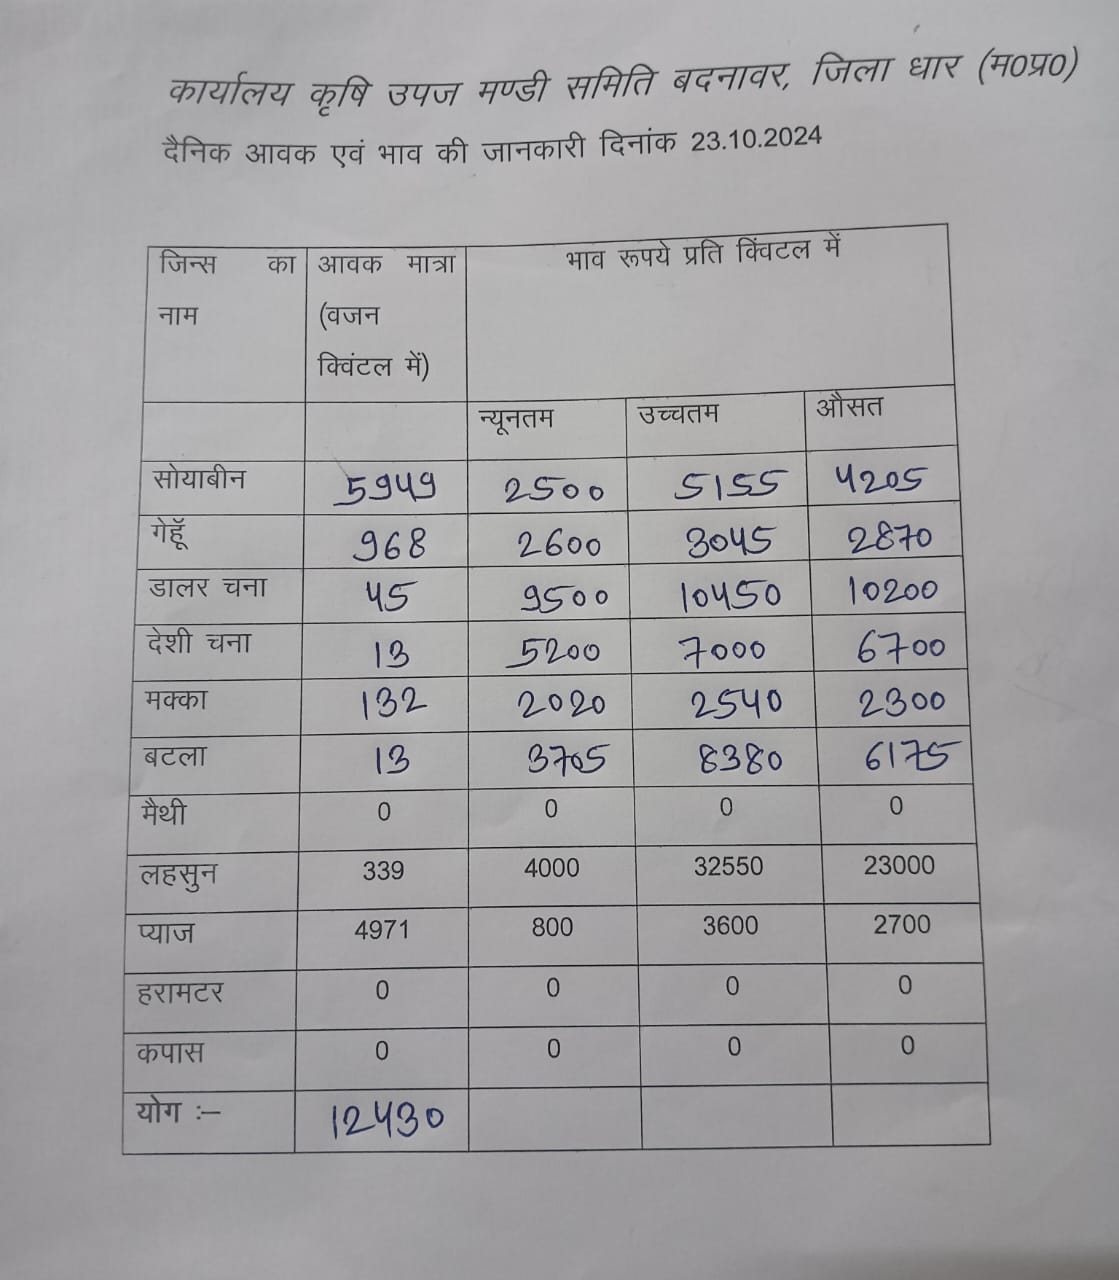 कार्यालय कृषि उपज मण्डी समिति बदनावर, जिला धार (म0प्र0)
दैनिक आवक एवं भाव की जानकारी दिनांक 23.10.2024
जिन्स का नाम आवक मात्रा (वजन क्विंटल में) भाव रूपये प्रति क्विंटल में
न्यूनतम उच्चतम औसत
सोयाबीन 5949 2500 5155 4205
गेहूॅ 968 2600 3045 2870
डालर चना 45 9500 10450 10200
देशी चना 13 5200 7000 6700
मक्का 132 2020 2540 2300
बटला 13 3705 8380 6175
मैथी 0 0 0 0
लहसुन 339 4000 32550 23000
प्याज 4971 800 3600 2700
हरामटर 0 0 0 0
कपास 0 0 0 0
योग :– 12430